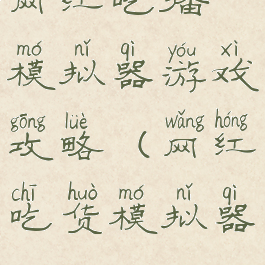 网红吃播
mó nǐ qì yóu xì
模拟器游戏
gōng lüè wǎng hóng
攻略（网红
chī huò mó nǐ qì
吃货模拟器